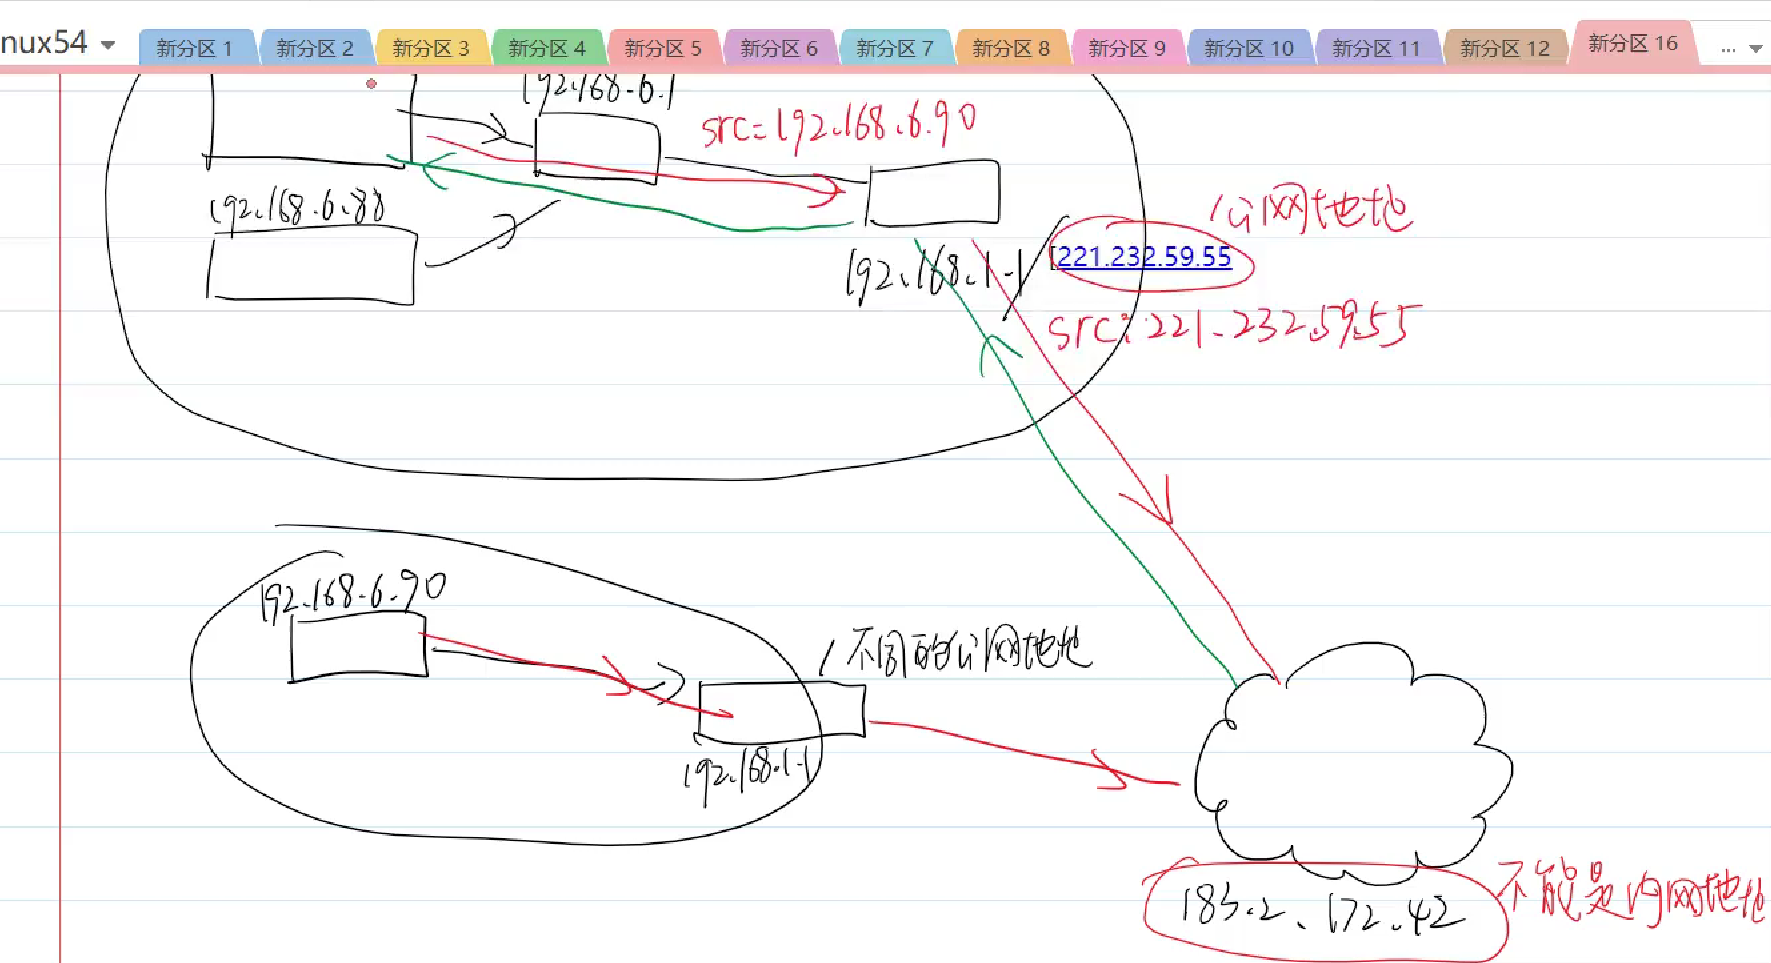 nux54
新分区 1
新分区 2
新分区 3
新分区 4
新分区 5
新分区 6
新分区 7
新分区 8
新分区 9
新分区 10
新分区 11
新分区 12
新分区 16
...
192.168.6.1
src=192.168.6.90
192.168.6.88
公网地址
192.168.1.1
221.232.59.55
src:221.232.59.55
192.168.6.90
不同的公网地址
192.168.1.1
183.2.172.42
不能是内网地址